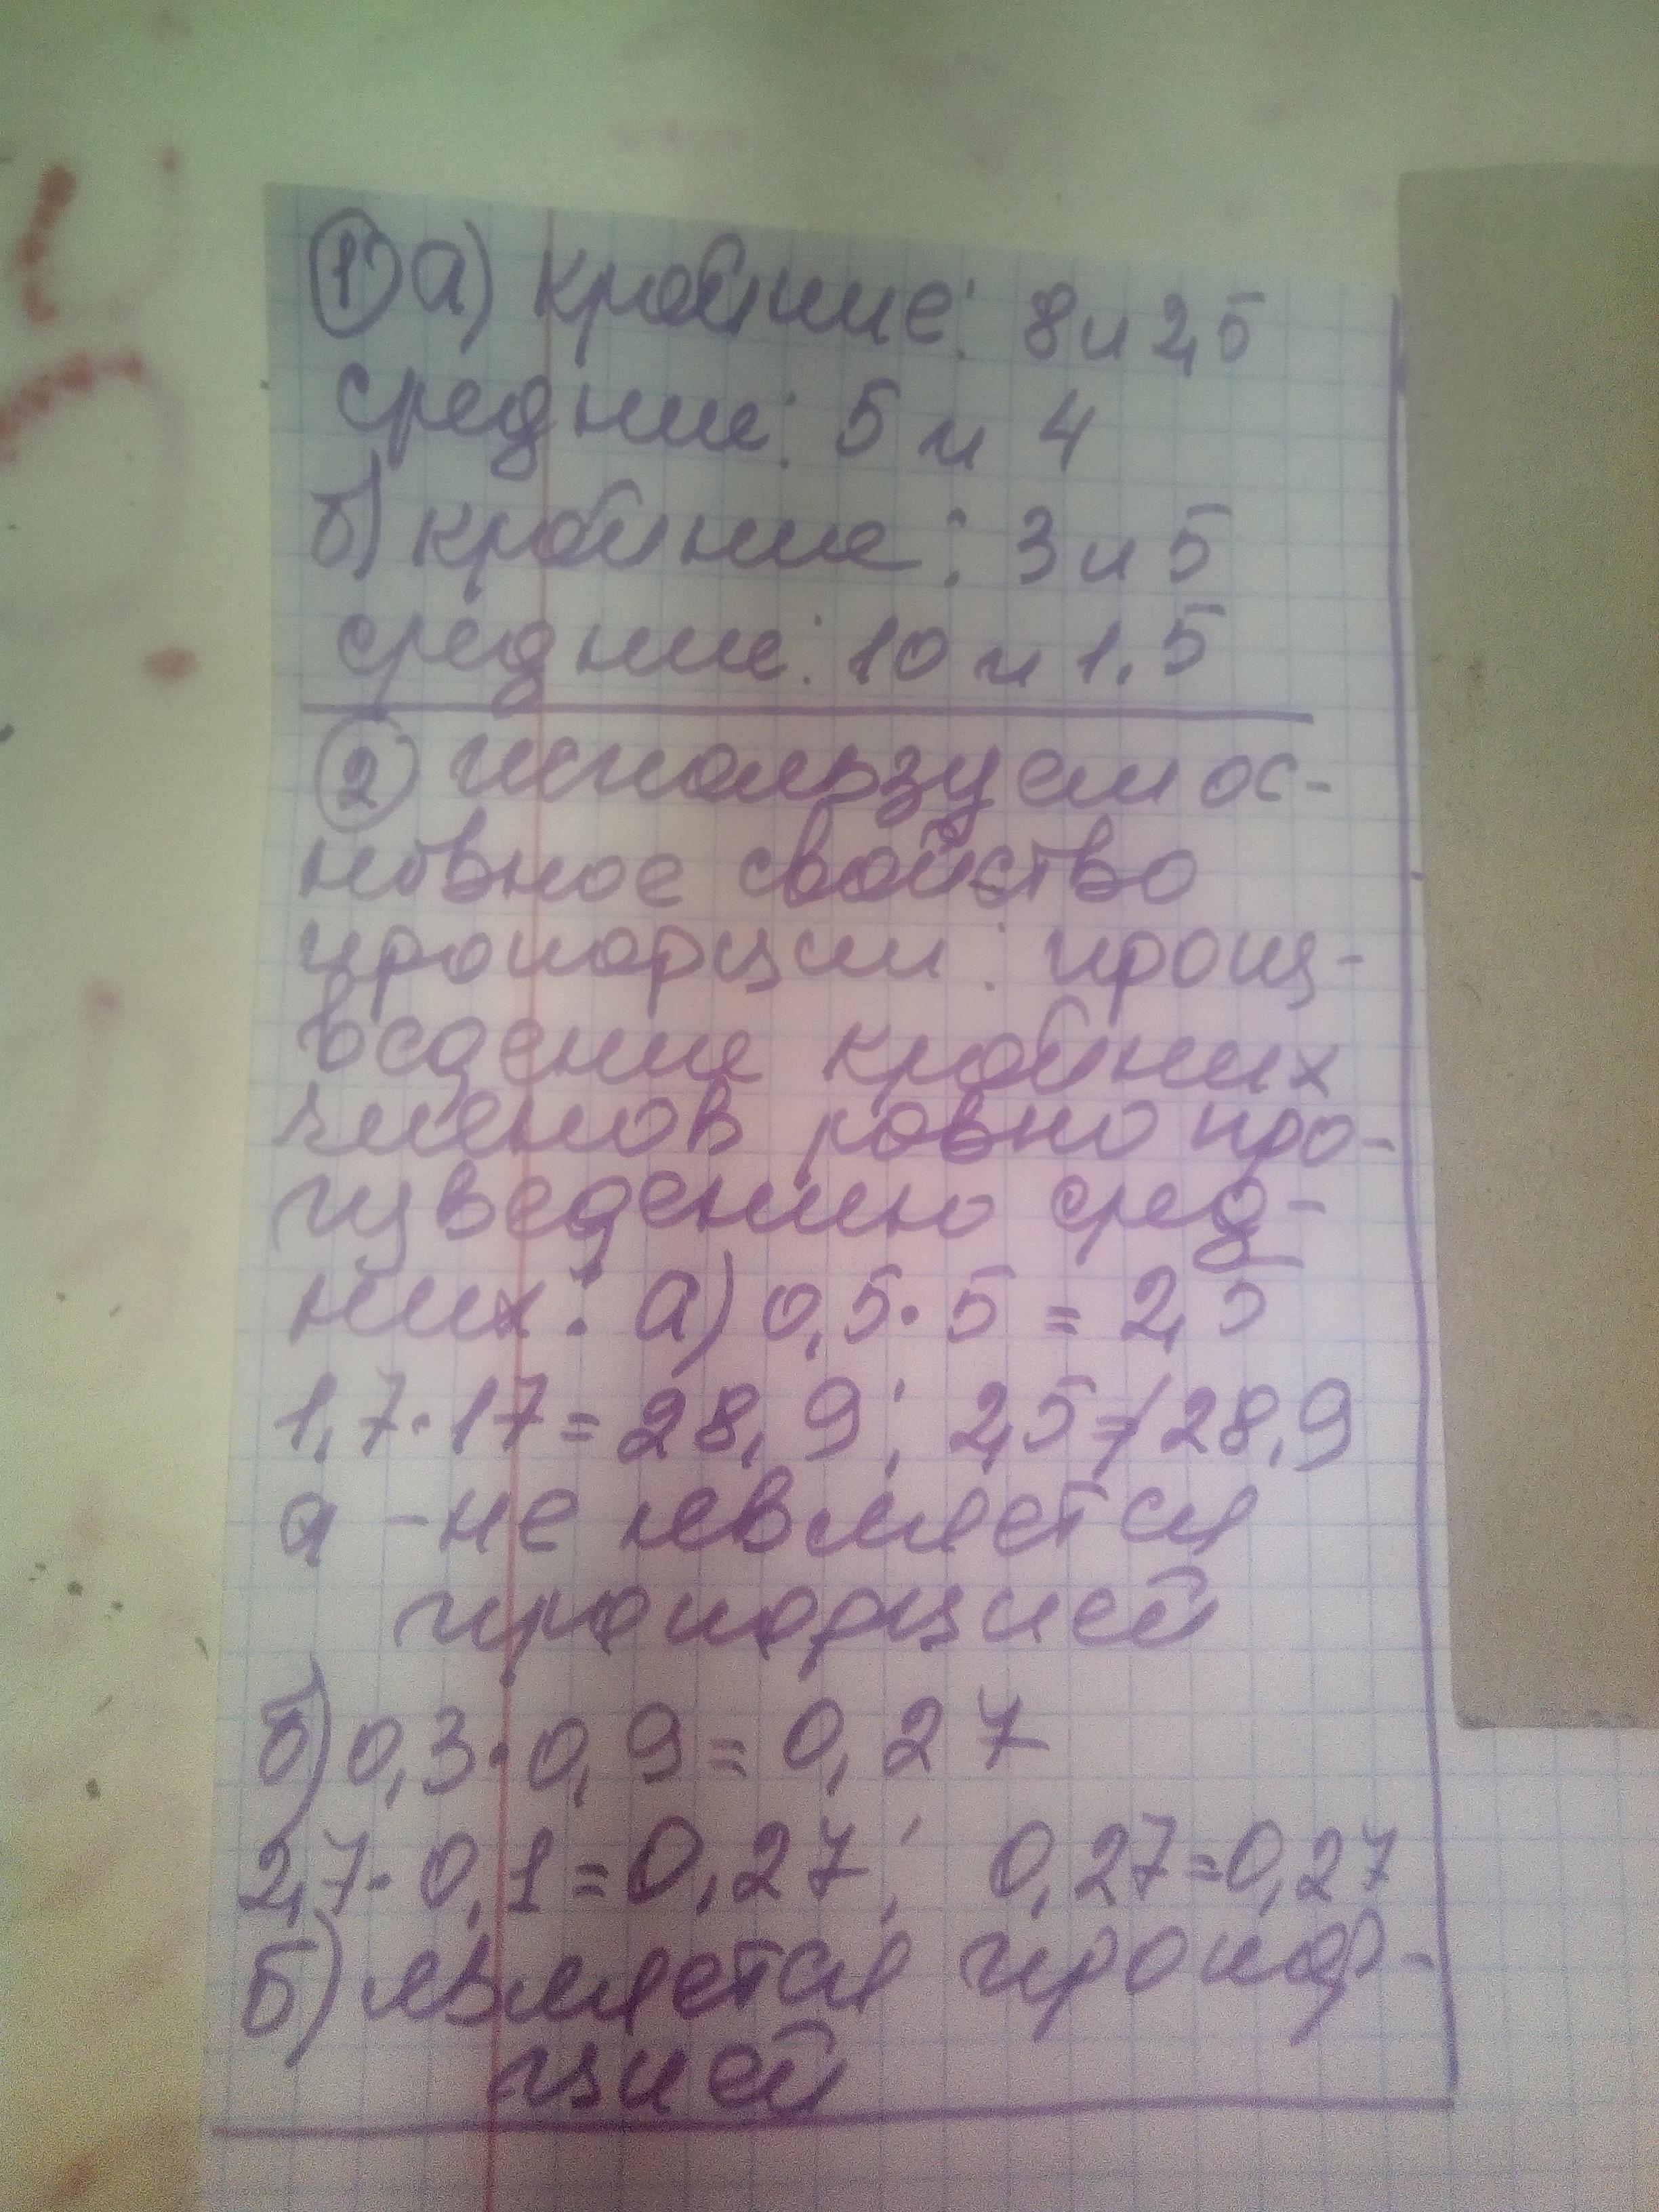 1) а) крайние: 8 и 2,5
средние: 5 и 4
б) крайние: 3 и 5
средние: 10 и 1.5
2) используем ос-
новное свойство
пропорции: произ-
ведение крайних
членов равно про-
изведению сред-
них: а) 0,5·5 = 2,5
1,7·17=28,9; 2,5≠28,9
а - не является
пропорцией
б) 0,3·0,9=0,27
2,7·0,1=0,27; 0,27=0,27
б) является пропор-
цией